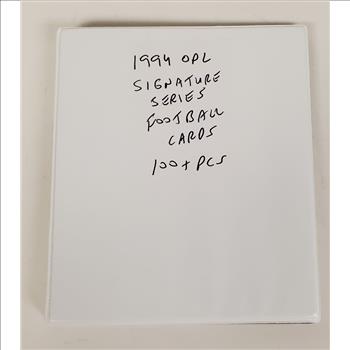 1994 OPL
SIGNATURE
SERIES
FOOTBALL
CARDS
100+ PCS